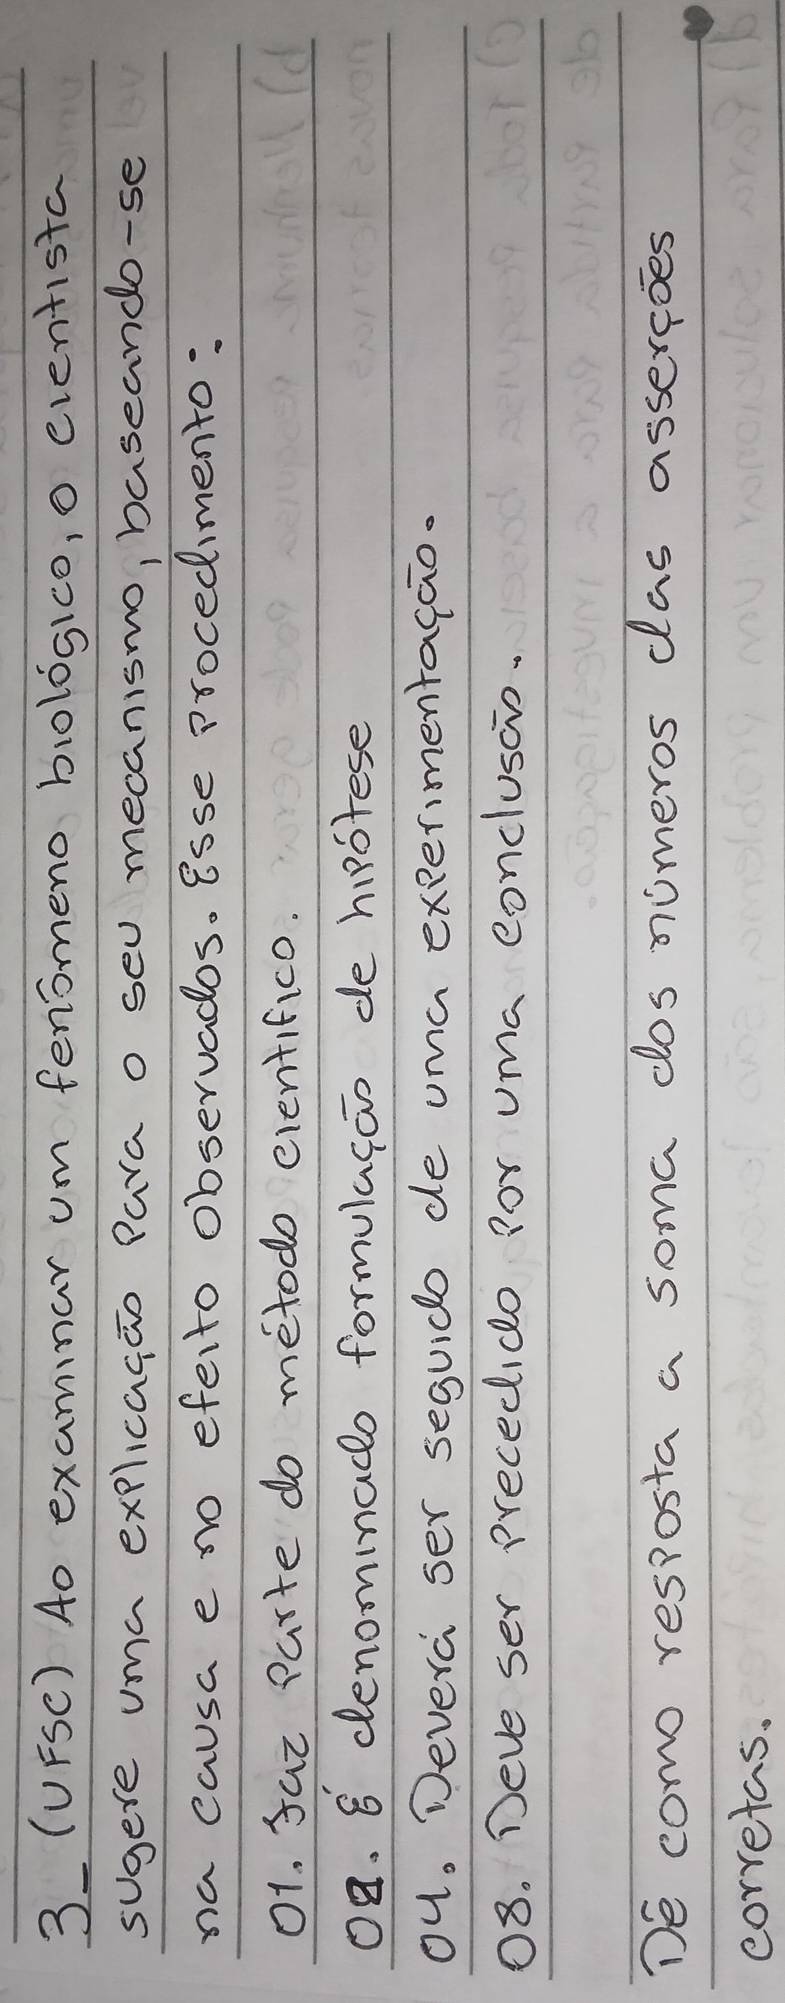 3_ (UFSC) Ao examinar um fenômeno biológico, o cientista
sugere uma explicação para o seu mecanismo, baseando-se
na causa e no efeito observados. Esse procedimento:
01. Faz parte do método científico.
02. É denominado formulação de hipótese
04. Deverá ser seguido de uma experimentação.
08. Deve ser precedido por uma conclusão.
Dê como resposta a soma dos números das asserções
corretas.